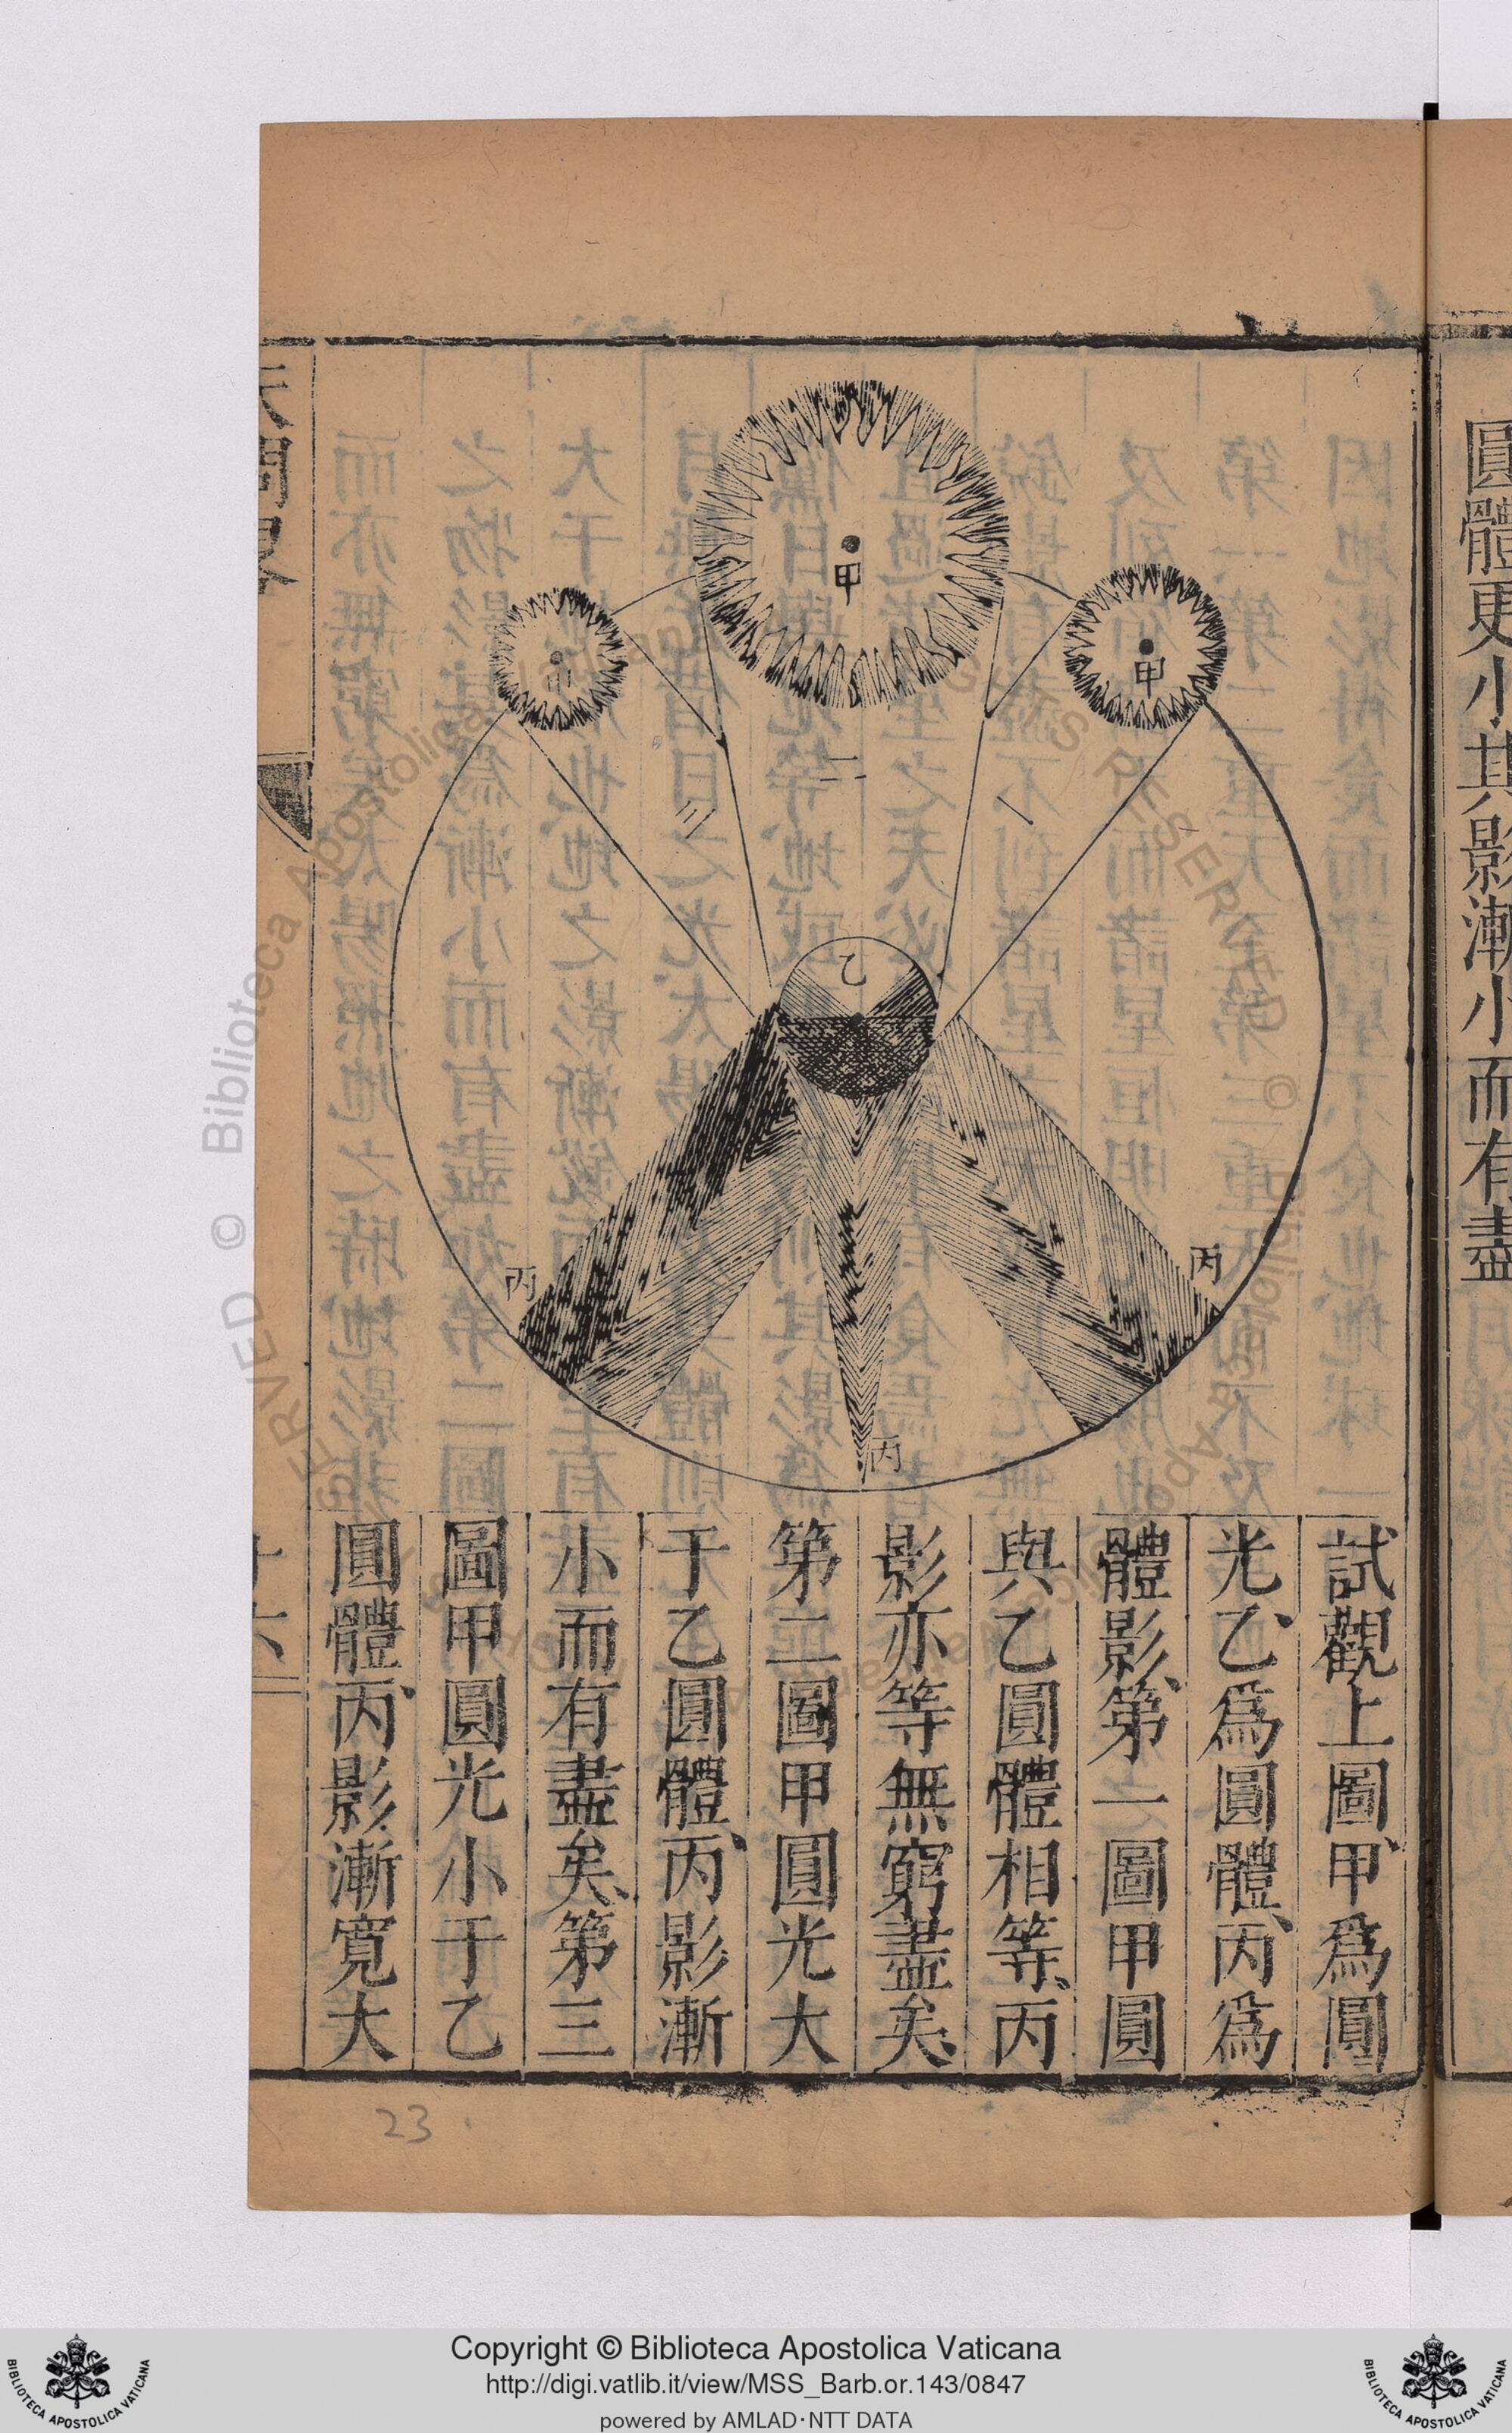 圓體更小其影漸小而有盡
甲
甲
甲
一
二
三
乙
丙
丙
丙
試觀上圖甲、爲圓
光乙、爲圓體、丙、爲
體影、第一圖甲圓
與乙圓體相等、丙
影亦等無窮盡矣、
第二圖甲圓光大
于乙圓體、丙影漸
小而有盡矣、第三
圖甲圓光小于乙
圓體丙、影漸寬大
天問畧
十六
23
Copyright © Biblioteca Apostolica Vaticana
http://digi.vatlib.it/view/MSS_Barb.or.143/0847
powered by AMLAD·NTT DATA
BIBLIOTECA APOSTOLICA VATICANA
BIBLIOTECA APOSTOLICA VATICANA